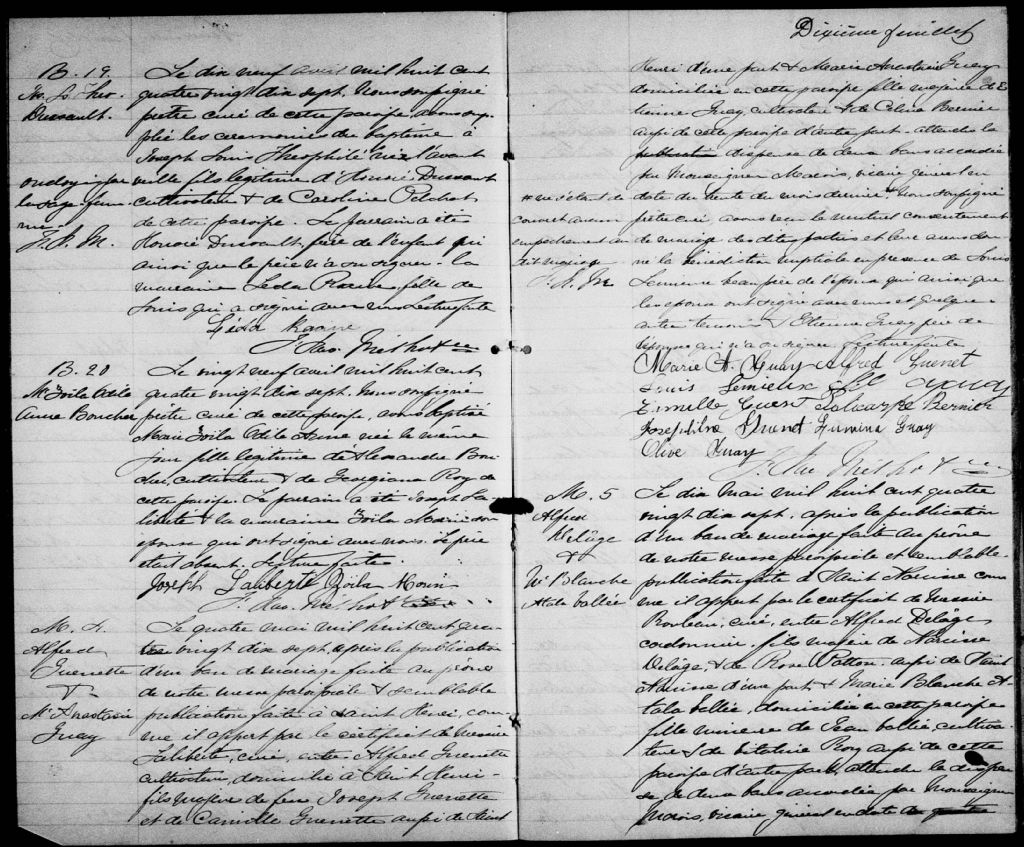 Dixième feuillet
B. 19.
Jos. Ls. Theo.
Dussault.
ondoyé par
la sage-fem
me.
F. X. M.
Le dix neuf avril mil huit cent
quatre vingt dix sept. Nous soussigné
prêtre curé de cette paroisse, avons sup-
pléé les cérémonies du baptême à
Joseph Louis Théophile né l'avant
veille fils légitime d'Honoré Dussault
cultivateur & de Caroline Pelchat
de cette paroisse. Le parrain a été
Honoré Dussault, frère de l'enfant qui
ainsi que le père n'a su signer. La
marraine Léda Racine, fille de
Louis qui a signé avec nous. Lecture faite
Léda Racine
F. Xav. Méthot ptre
B. 20
Me Zoïla Adéla
Anna Boucher
Le vingt neuf avril mil huit cent
quatre vingt dix sept, Nous soussigné
prêtre curé de cette paroisse, avons baptisé
Marie Zoïla Adéla Anna née le même
jour fille légitime de Alexandre Bou-
cher, cultivateur & de Georgiana Roy de
cette paroisse. Le parrain a été Joseph La-
liberté & la marraine Zoïla Morin son
épouse qui ont signé avec nous. Le père
était absent. Lecture faite.
Joseph Laliberté Zoïla Morin
F. Xav. Méthot
M. 4.
Alfred
Guenette
&
Me Anastasie
Guay
Le quatre mai mil huit cent qua-
tre vingt dix sept, après la publication
d'un ban de mariage faite au prône
de notre messe paroissiale & semblable
publication faite à Saint Henri, com-
me il appert par le certificat de Messire
Laliberté, curé, entre Alfred Guenette
cultivateur, domicilié à Saint Henri
fils majeur de feu Joseph Guenette
et de Camille Guenette aussi de Saint
Henri d'une part & Marie Anastasie Guay
domiciliée en cette paroisse fille majeure de E-
tienne Guay, cultivateur & de Célina Bernier
aussi de cette paroisse d'autre part. Attendu la
publication dispense de deux bans accordée
par Monseigneur Marois, vicaire général en
date du trente du mois dernier # Nous soussigné
prêtre curé avons reçu le mutuel consentement
de mariage des dites parties et leur avons don-
né la bénédiction nuptiale en présence de Louis
Lemieux beau père de l'époux qui ainsi que
les époux ont signé avec nous et quelques
autres témoins & Etienne Guay père de
l'épouse qui n'a su signer. Lecture faite
# ne s'étant dé-
couvert aucun
empêchement au
dit mariage
F. X. M
Marie A. Guay Alfred Guenet
Louis Lemieux
Guay
Guent Polycarpe Bernier
Josephine Guenet Lumina Guay
Olive Guay
F. Xav. Méthot ptre
M. 5
Alfred
Delâge
&
Me Blanche
Atala Vallée
Le dix Mai mil huit cent quatre
vingt dix sept. après la publication
d'un ban de mariage faite au prône
de notre messe paroissiale et semblable
publication faite à Saint Narcisse com-
me il appert par le certificat de Messire
Rouleau, curé, entre Alfred Delâge
cordonnier, fils majeur de Narcisse
Delâge, & de Rose Patton aussi de Saint
Narcisse d'une part & Marie Blanche A-
tala Vallée, domiciliée en cette paroisse
fille mineure de Jean Vallée, cultiva-
teur & de Vitaline Roy aussi de cette
paroisse d'autre part, attendu la dispen-
se de deux bans accordée par Monseigneur
Marois, vicaire général en date du